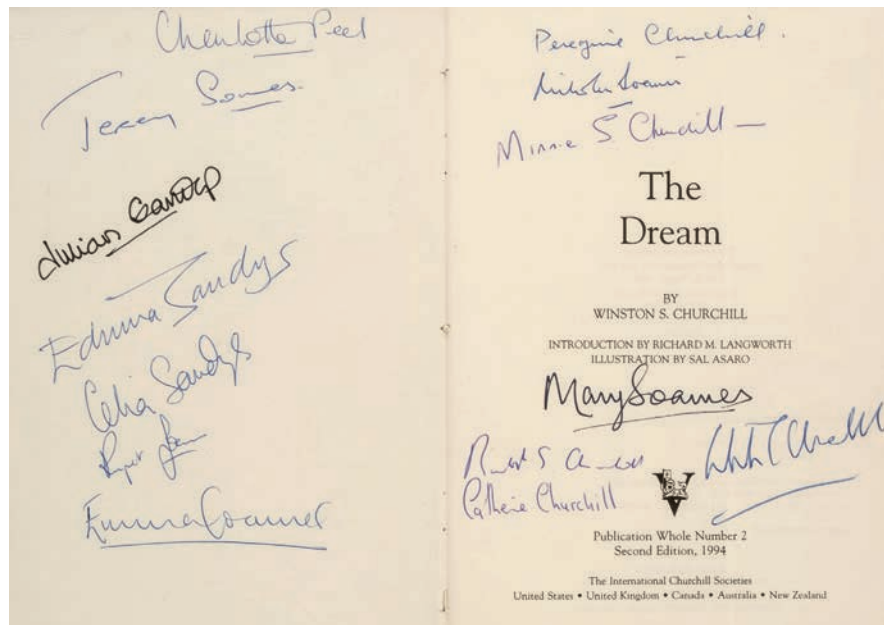 Charlotte Peel
Jeremy Soames.
Julian Sandys
Edwina Sandys
Celia Sandys
Rupert Soames
Emma Soames
Peregrine Churchill.
Nicholas Soames
Minnie S Churchill
The
Dream
BY
WINSTON S. CHURCHILL
INTRODUCTION BY RICHARD M. LANGWORTH
ILLUSTRATION BY SAL ASARO
Mary Soames
Randolph S Churchill
Catherine Churchill
Publication Whole Number 2
Second Edition, 1994
The International Churchill Societies
United States • United Kingdom • Canada • Australia • New Zealand